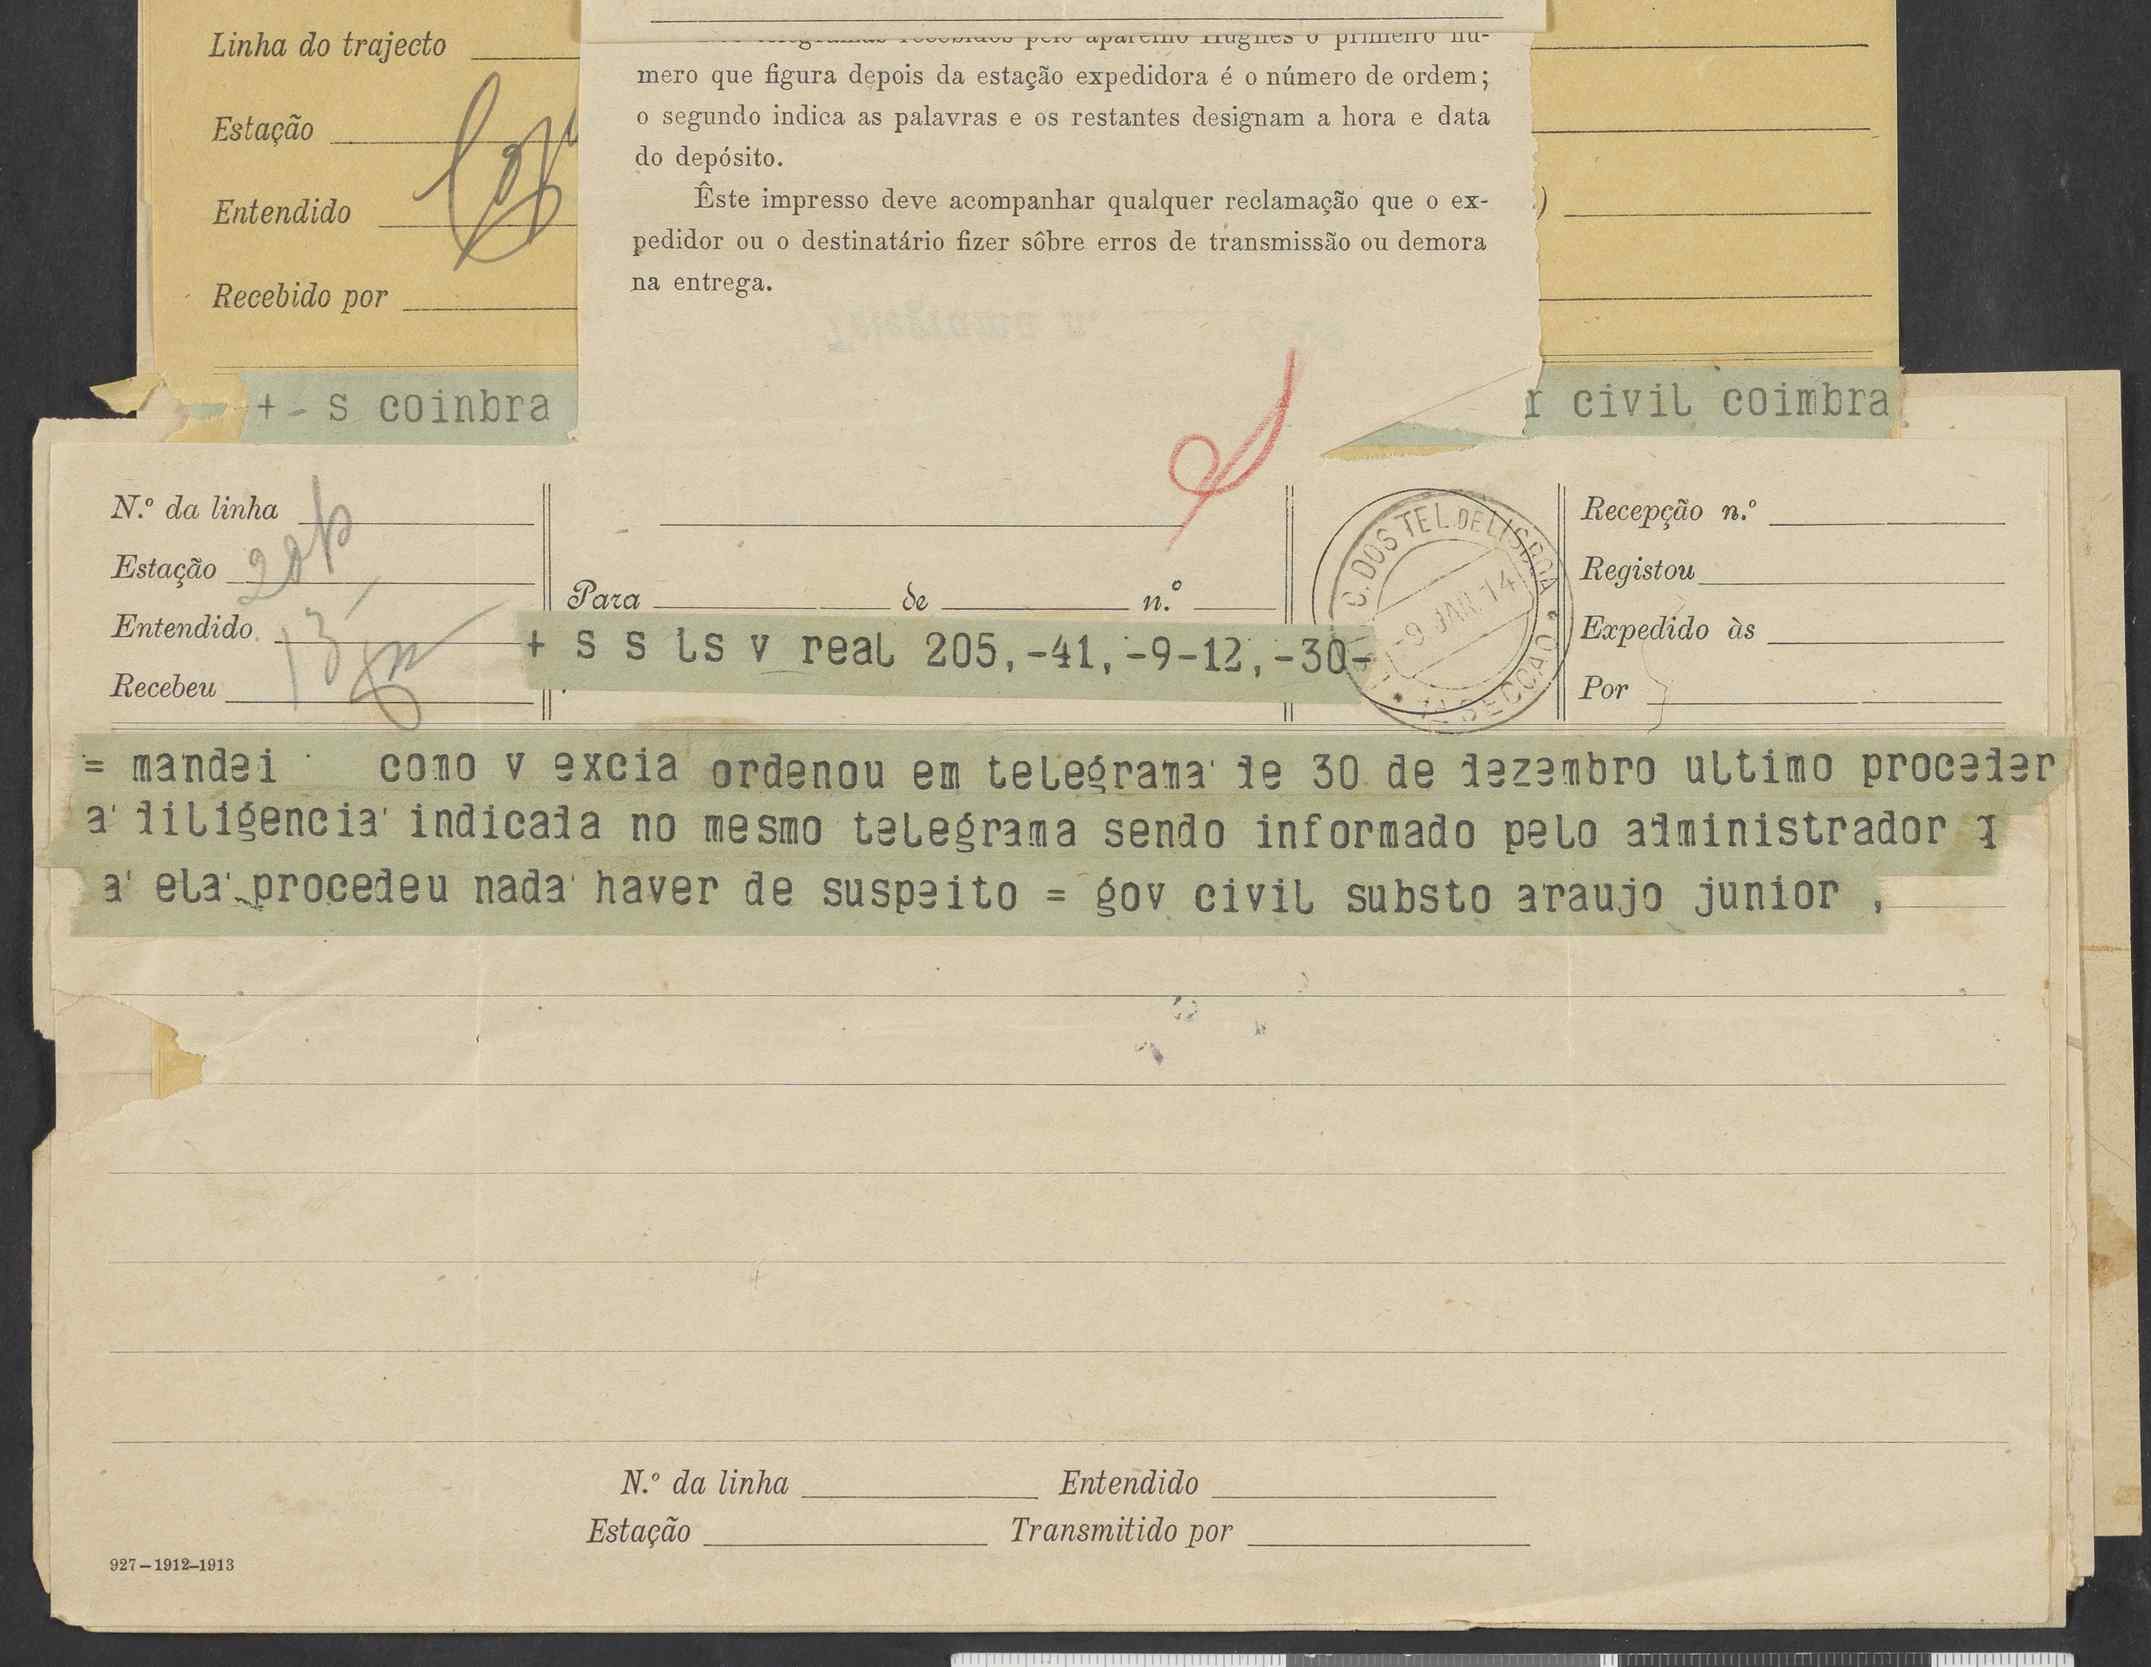 Linha do trajecto
Estação
Entendido
Recebido por
telegramas recebidos pelo aparelho Hughes o primeiro nú-
mero que figura depois da estação expedidora é o número de ordem;
o segundo indica as palavras e os restantes designam a hora e data
do depósito.
Êste impresso deve acompanhar qualquer reclamação que o ex-
pedidor ou o destinatário fizer sôbre erros de transmissão ou demora
na entrega.
+ - s coinbra
r civil coimbra
N.º da linha
Estação
Entendido
Recebeu
Para de n.º
C. DOS TEL. DE LISBOA
-9 JAN. 14
SECÇÃO
Recepção n.º
Registou
Expedido às
Por
+ s s ls v real 205,-41,-9-12,-30-
= mandei como v excia ordenou em telegrama de 30 de dezembro ultimo proceder
a diligencia indicada no mesmo telegrama sendo informado pelo administrador q
a ela procedeu nada haver de suspeito = gov civil substo araujo junior ,
N.º da linha Entendido
Estação Transmitido por
927–1912–1913